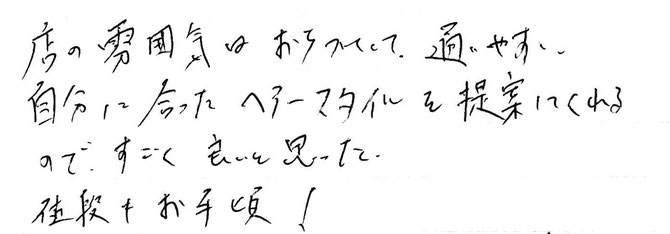 店の雰囲気はおちついてて、通いやすい。
自分に合ったヘアースタイルを提案してくれる
ので、すごく良いと思った。
値段もお手頃!